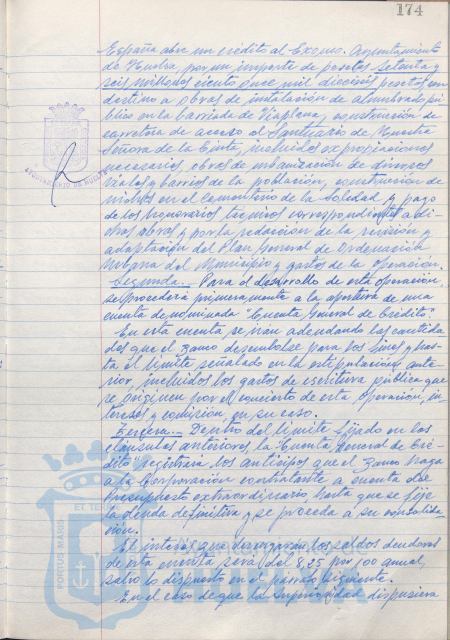 174
España abre un crédito al Excmo. Ayuntamiento
de Huelva por un importe de pesetas setenta y
seis millones ciento once mil dieciséis pesetas con
destino a obras de instalación de alumbrado pú-
blico en la barriada de Viaplana, construcción de
carretera de acceso al Santuario de Nuestra
Señora de la Cinta, incluidas expropiaciones
necesarias, obras de urbanización de diversos
viales y barrios de la población, construcción de
nichos en el cementerio de la Soledad y pago
de los honorarios técnicos correspondientes a di-
chas obras y por la redacción de la revisión y
adaptación del Plan General de Ordenación
Urbana del Municipio y gastos de la operación.
Segunda.- Para el desarrollo de esta operación
se procederá primeramente a la apertura de una
cuenta denominada "Cuenta General de Crédito".
En esta cuenta se irán adeudando las cantida
des que el Banco desembolse para los fines y has-
ta el límite señalado en la estipulación ante-
rior, incluidos los gastos de escritura pública que
se originen por el concierto de esta operación, in-
tereses y comisión en su caso.
Tercera.- Dentro del límite fijado en las
cláusulas anteriores, la Cuenta General de Cré-
dito registrará los anticipos que el Banco haga
a la Corporación contratante a cuenta del
Presupuesto extraordinario hasta que se fije
la deuda definitiva y se proceda a su consolida-
ción.
El interés que devengarán los saldos deudores
de esta cuenta, será del 8,25 por 100 anual,
salvo lo dispuesto en el párrafo siguiente.
En el caso de que la Superioridad dispusiera
AYUNTAMIENTO DE HUELVA
PORTUS MARIS